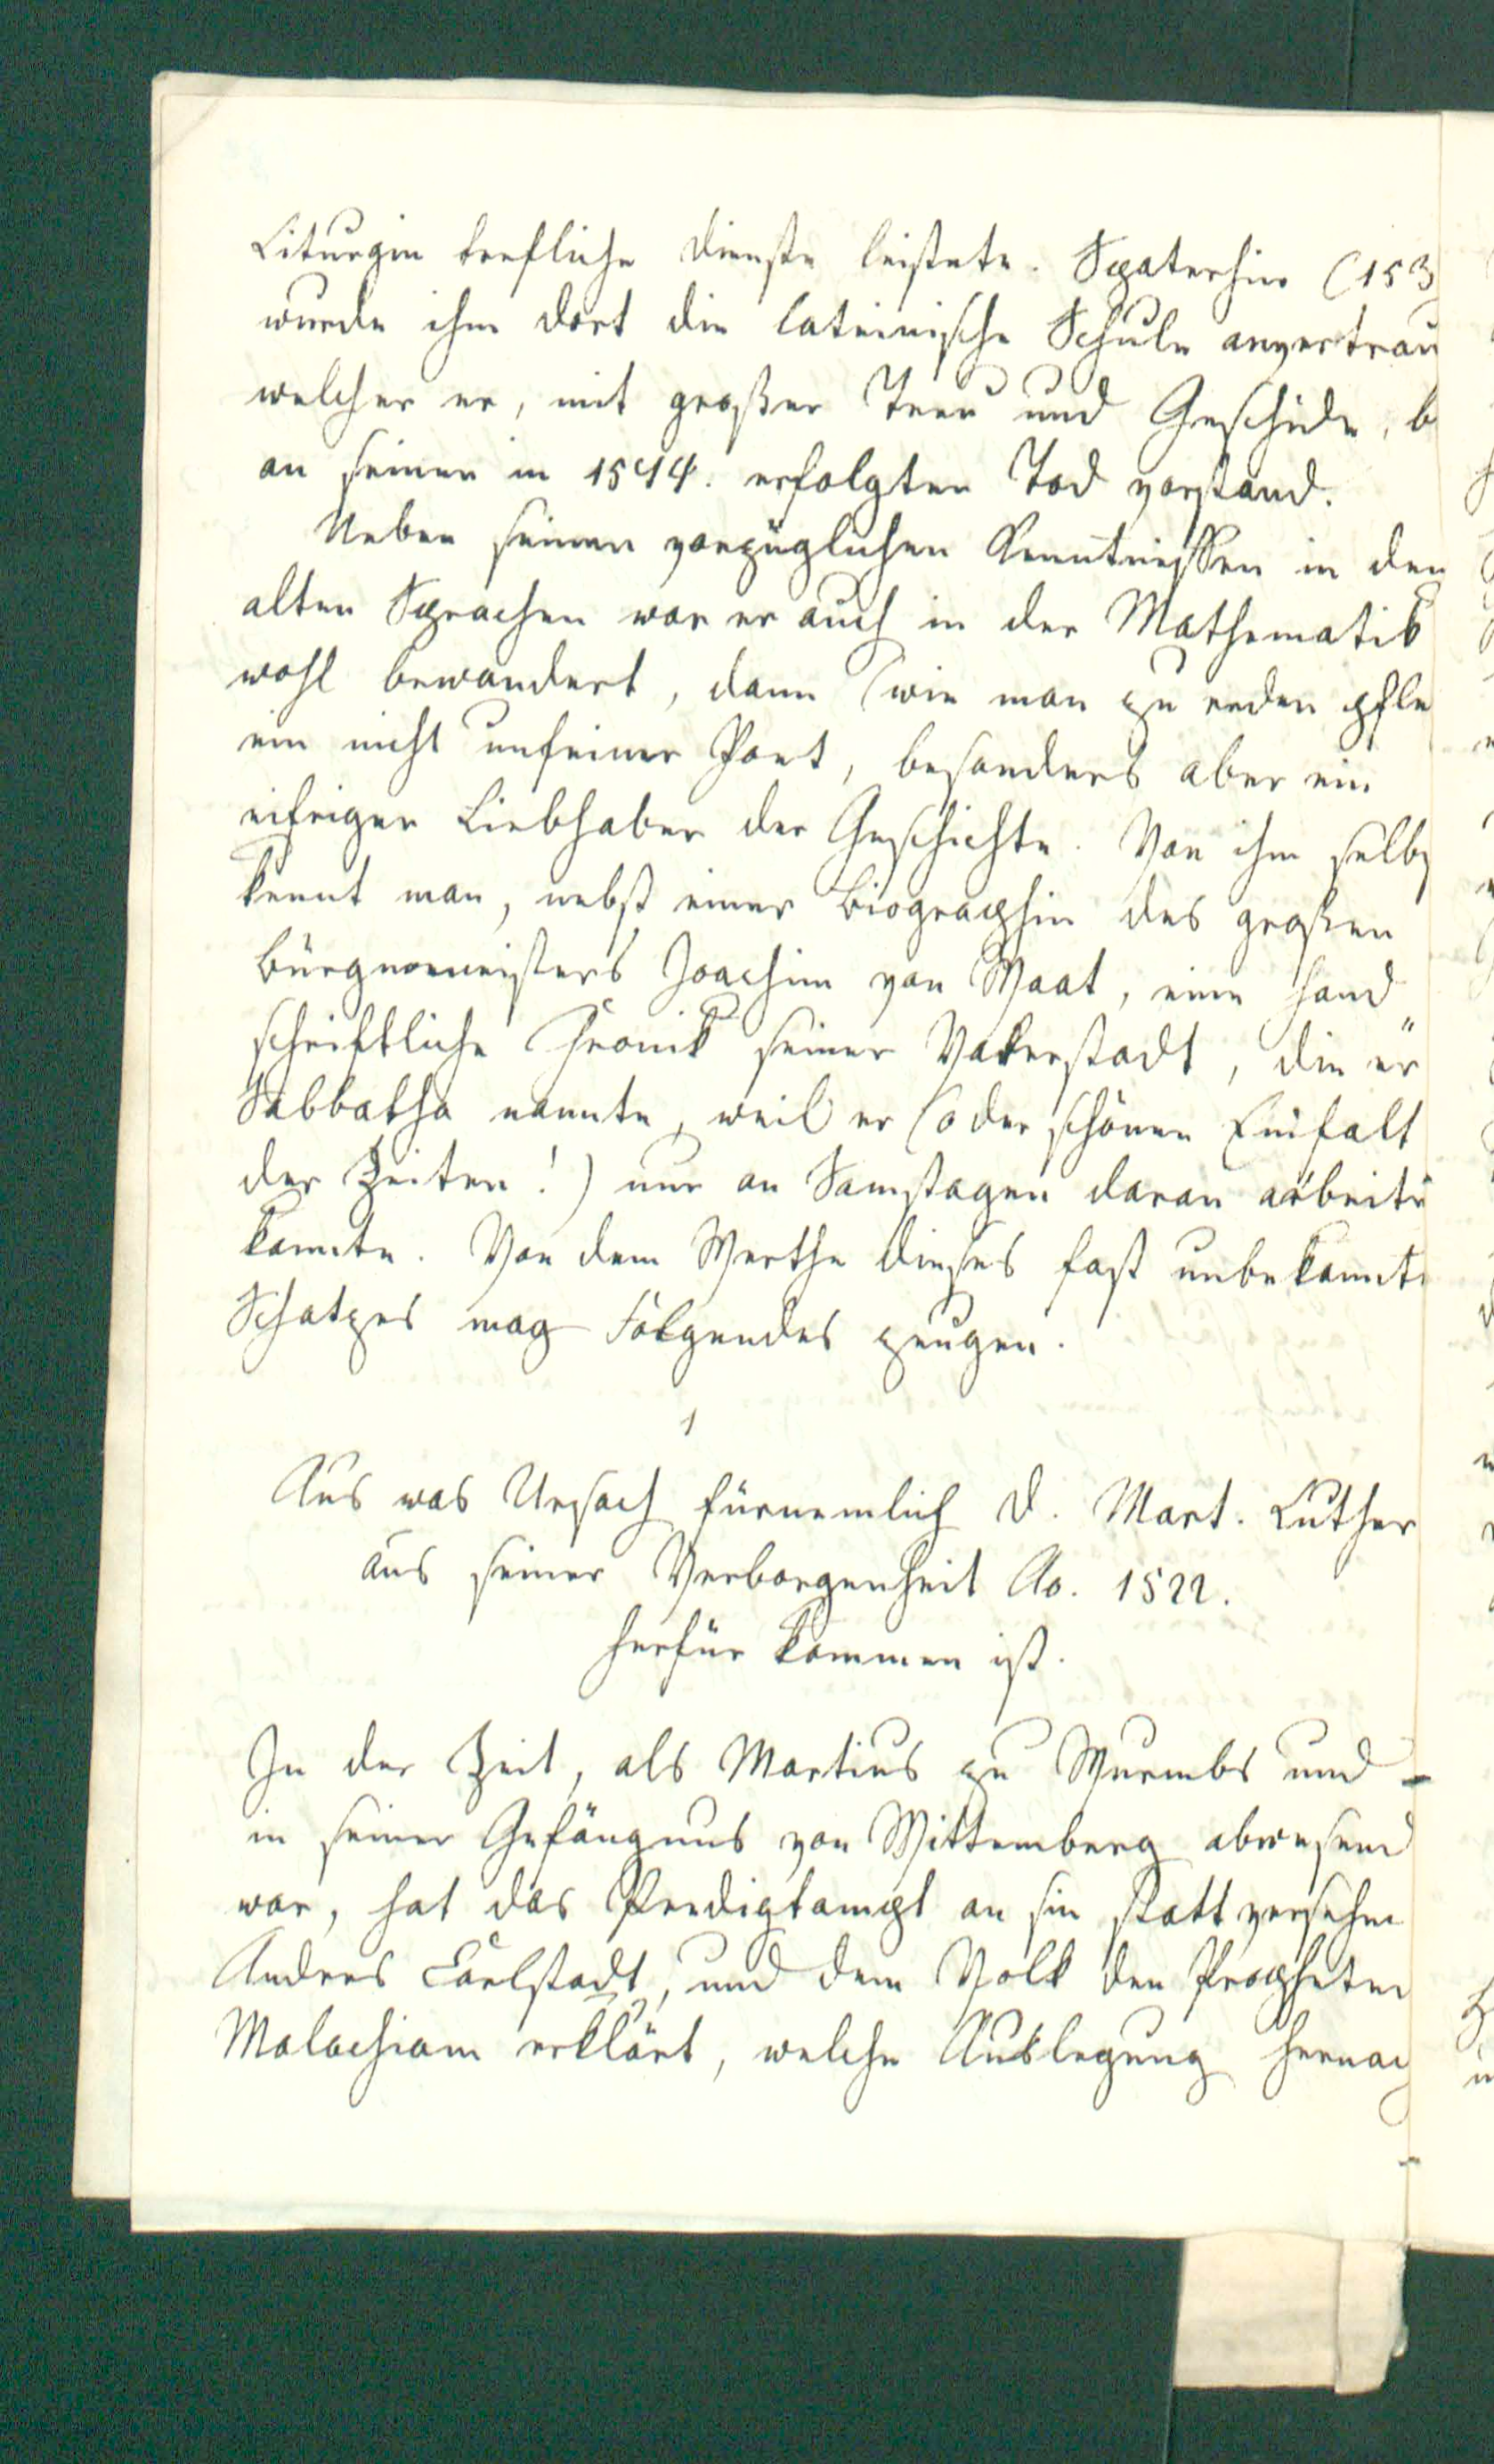 Liturgie trefliche Dienste leistete. Spaterhin (153
wurde ihm dort die lateinische Schule anvertrau
welcher er, mit großer Treu und Geschicke, b
an seinen in 1544. erfolgten Tod vorstand.
Neben seinen vorzüglichen Kenntnissen in den
alten Sprachen war er auch in der Mathematik
wohl bewandert, dann (wie man zu reden pfle
ein nicht unfeiner Poet, besonders aber ein
eifriger Liebhaber der Geschichte. Von ihm selbs
kennt man, nebst einer Biographie des großen
Bürgermeisters Joachim von Waat, eine hand
schriftliche Chronik seiner Vaterstadt, die er
Sabbatha nannte, weil er (o der schönen Einfalt
der Zeiten!) nur an Samstagen daran arbeite
konnte. Von dem Werthe dieses fast unbekannte
Schatzes mag Folgendes zeugen.
1
Aus was Ursach fürnemlich D. Mart. Luther
aus seiner Verborgenheit Ao. 1522.
herfür kommen ist.
In der Zeit, als Martius zu Wurmbs und
in seiner Gefängnus von Wittemberg abwesend
war, hat das Predigtampt an sin statt versehen
Andres Carlstadt, und dem Volk den Propheten
Malachiam erklärt, welche Auslegung hernac